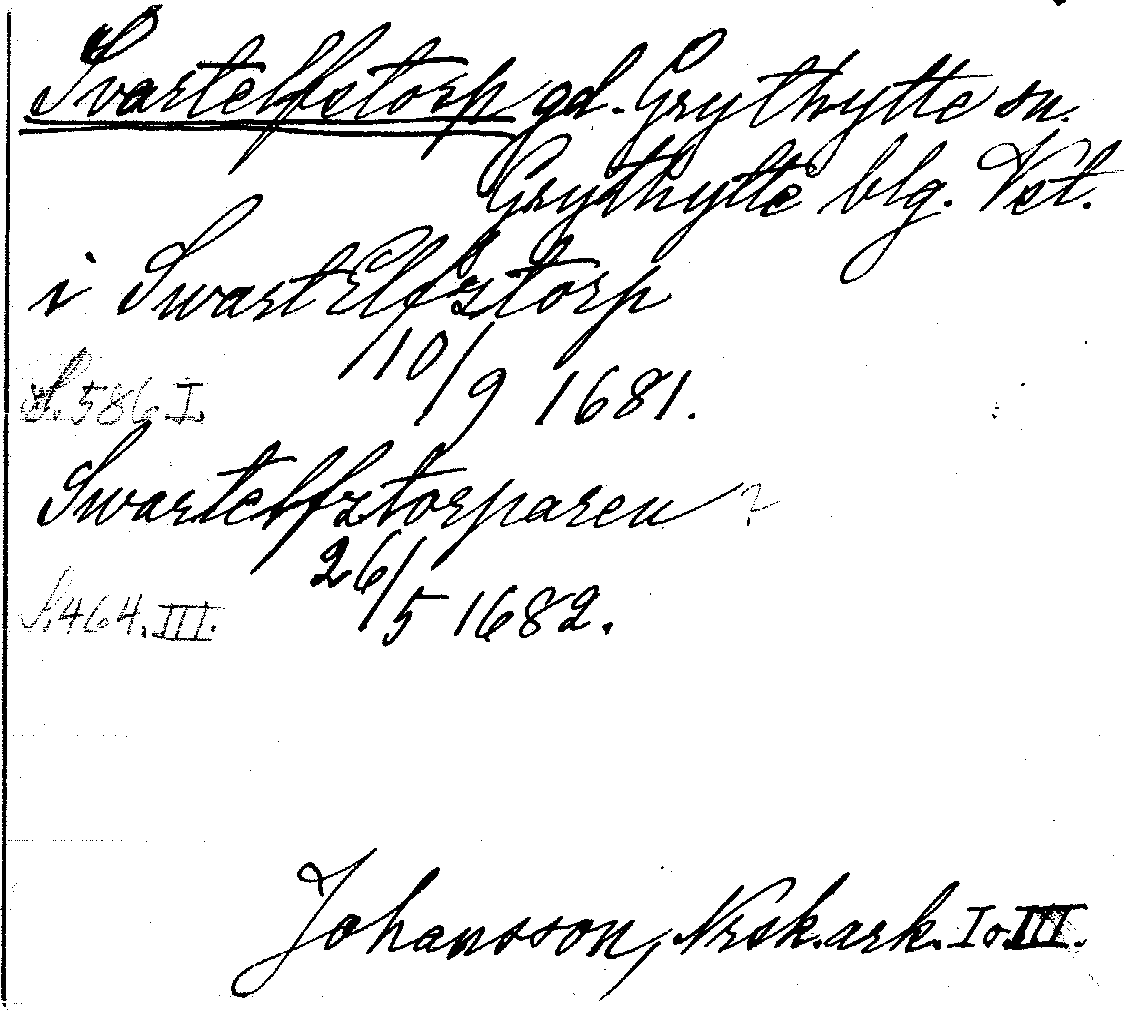 Svartelfstorp gd. Grythytte sn.
Grythytte blg. Vstl.
i SwartElfztorp
10/9 1681.
S. 586 I.
Swartelfztorparen ?
26/5 1682.
S. 464. III.
Johansson, Nrsk. ark. I o. III.